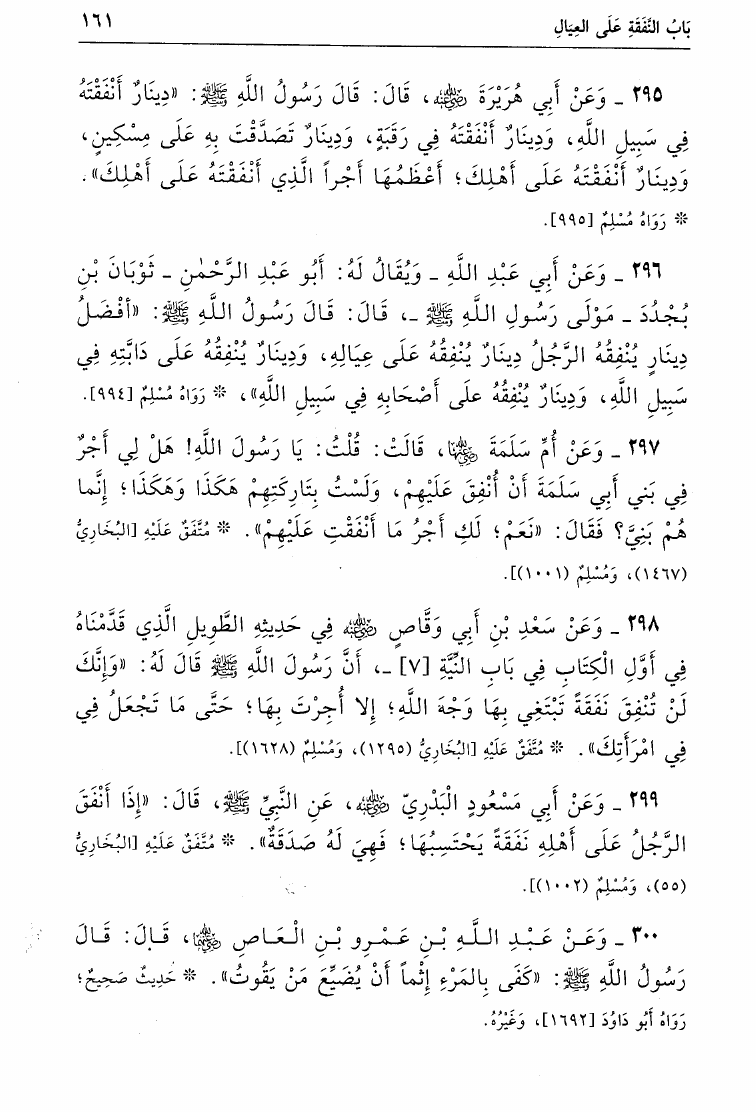 بَابُ النَّفَقَةِ عَلَى العِيَالِ ١٦١
٢٩٥ ـ وَعَنْ أَبِي هُرَيْرَةَ ﵁، قَالَ: قَالَ رَسُولُ اللَّهِ ﷺ: «دِينَارٌ أَنْفَقْتَهُ
فِي سَبِيلِ اللَّهِ، وَدِينَارٌ أَنْفَقْتَهُ فِي رَقَبَةٍ، وَدِينَارٌ تَصَدَّقْتَ بِهِ عَلَى مِسْكِينٍ،
وَدِينَارٌ أَنْفَقْتَهُ عَلَى أَهْلِكَ؛ أَعْظَمُهَا أَجْراً الَّذِي أَنْفَقْتَهُ عَلَى أَهْلِكَ».
* رَوَاهُ مُسْلِمٌ [٩٩٥].
٢٩٦ ـ وَعَنْ أَبِي عَبْدِ اللَّهِ ـ وَيُقَالُ لَهُ: أَبُو عَبْدِ الرَّحْمٰنِ ـ ثَوْبَانَ بْنِ
بُجْدُدَ ـ مَوْلَى رَسُولِ اللَّهِ ﷺ ـ، قَالَ: قَالَ رَسُولُ اللَّهِ ﷺ: «أَفْضَلُ
دِينَارٍ يُنْفِقُهُ الرَّجُلُ دِينَارٌ يُنْفِقُهُ عَلَى عِيَالِهِ، وَدِينَارٌ يُنْفِقُهُ عَلَى دَابَّتِهِ فِي
سَبِيلِ اللَّهِ، وَدِينَارٌ يُنْفِقُهُ علَى أَصْحَابِهِ فِي سَبِيلِ اللَّهِ»، * رَوَاهُ مُسْلِمٌ [٩٩٤].
٢٩٧ ـ وَعَنْ أُمِّ سَلَمَةَ ﵂، قَالَتْ: قُلْتُ: يَا رَسُولَ اللَّهِ! هَلْ لِي أَجْرٌ
فِي بَنِي أَبِي سَلَمَةَ أَنْ أُنْفِقَ عَلَيْهِمْ، وَلَسْتُ بِتَارِكَتِهِمْ هَكَذَا وَهَكَذَا؛ إِنَّما
هُمْ بَنِيَّ؟ فَقَالَ: «نَعَمْ؛ لَكِ أَجْرُ مَا أَنْفَقْتِ عَلَيْهِمْ». * مُتَّفَقٌ عَلَيْهِ [البُخَارِيُّ
(١٤٦٧)، وَمُسْلِمٌ (١٠٠١)].
٢٩٨ ـ وَعَنْ سَعْدِ بْنِ أَبِي وَقَّاصٍ ﵁ فِي حَدِيثِهِ الطَّوِيلِ الَّذِي قَدَّمْنَاهُ
فِي أَوَّلِ الْكِتَابِ فِي بَابِ النِّيَّةِ [٧] ـ، أَنَّ رَسُولَ اللَّهِ ﷺ قَالَ لَهُ: «وَإِنَّكَ
لَنْ تُنْفِقَ نَفَقَةً تَبْتَغِي بِهَا وَجْهَ اللَّهِ؛ إِلا أُجِرْتَ بِهَا؛ حَتَّى مَا تَجْعَلُ فِي
فِي امْرَأَتِكَ». * مُتَّفَقٌ عَلَيْهِ [البُخَارِيُّ (١٢٩٥)، وَمُسْلِمٌ (١٦٢٨)].
٢٩٩ ـ وَعَنْ أَبِي مَسْعُودٍ الْبَدْرِيِّ ﵁، عَنِ النَّبِيِّ ﷺ، قَالَ: «إِذَا أَنْفَقَ
الرَّجُلُ عَلَى أَهْلِهِ نَفَقَةً يَحْتَسِبُهَا؛ فَهِيَ لَهُ صَدَقَةٌ». * مُتَّفَقٌ عَلَيْهِ [البُخَارِيُّ
(٥٥)، وَمُسْلِمٌ (١٠٠٢)].
٣٠٠ ـ وَعَنْ عَبْدِ اللَّهِ بْنِ عَمْرِو بْنِ الْعَاصِ ﵄، قَالَ: قَالَ
رَسُولُ اللَّهِ ﷺ: «كَفَى بِالمَرْءِ إِثْماً أَنْ يُضَيِّعَ مَنْ يَقُوتُ». * حَدِيثٌ صَحِيحٌ؛
رَوَاهُ أَبُو دَاوُدَ [١٦٩٢]، وَغَيْرُهُ.